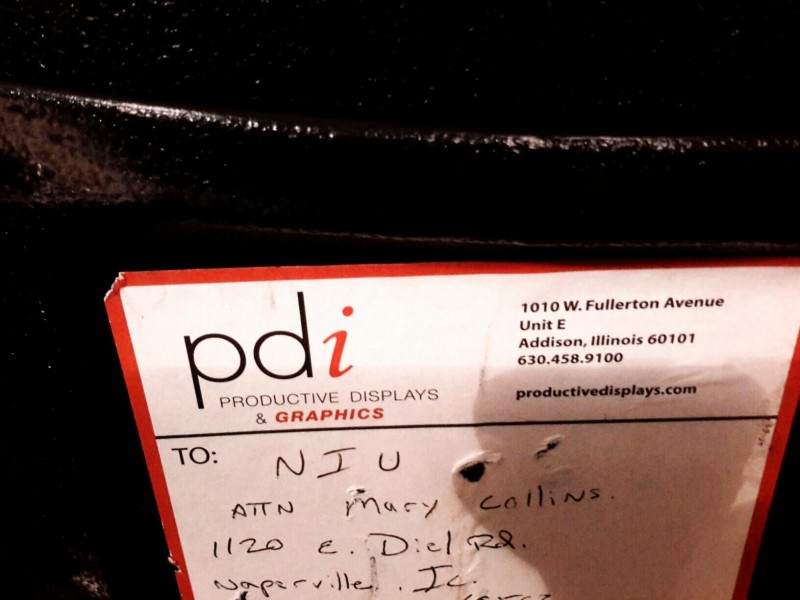 pdi
PRODUCTIVE DISPLAYS
& GRAPHICS
1010 W. Fullerton Avenue
Unit E
Addison, Illinois 60101
630.458.9100
productivedisplays.com
TO: NIU
ATTN Mary Collins.
1120 E. Diel Rd.
Naperville, IL.